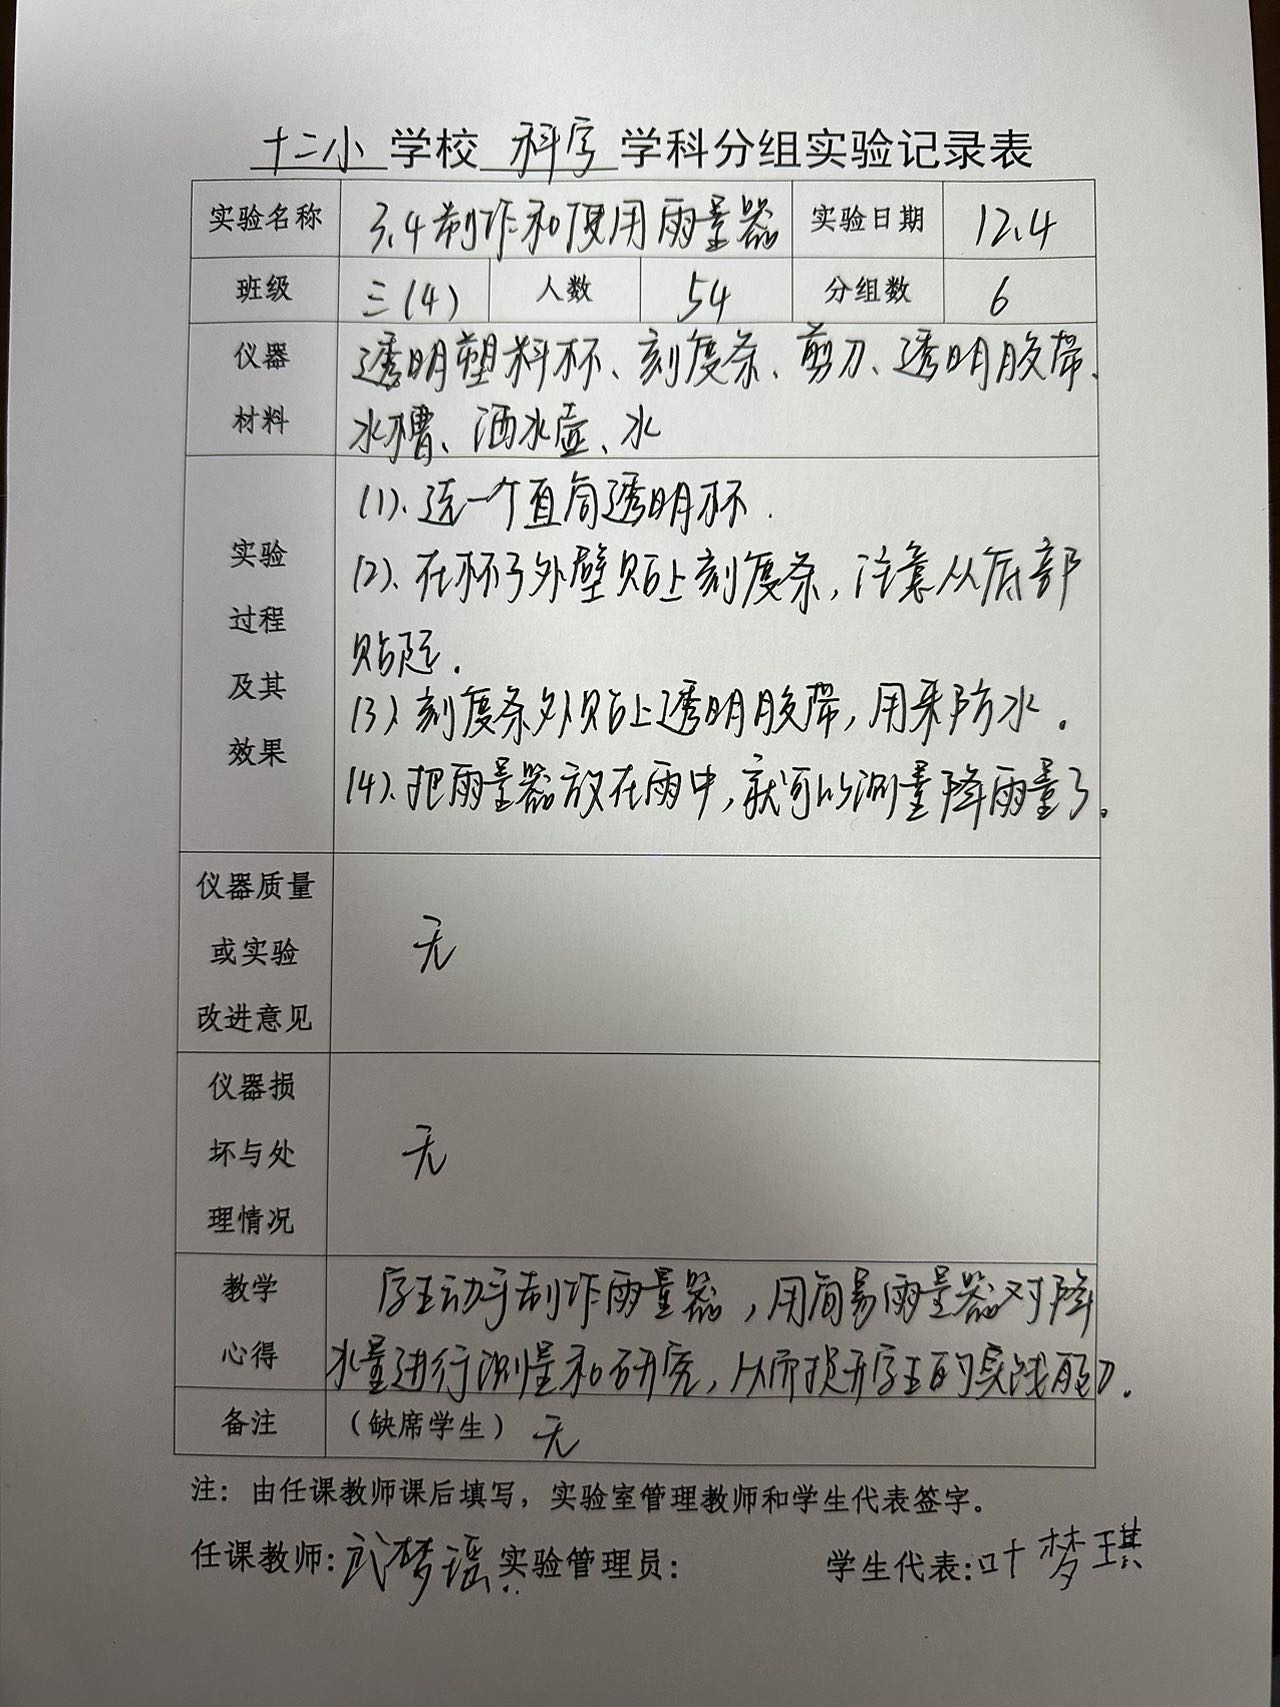 十二小 学校 科学 学科分组实验记录表
实验名称 3.4制作和使用雨量器 实验日期 12.4
班级 三(4) 人数 54 分组数 6
仪器 透明塑料杯、刻度条、剪刀、透明胶带、
材料 水槽、洒水壶、水
(1)、选一个直筒透明杯.
实验 (2)、在杯子外壁贴上刻度条,注意从底部
过程 贴起.
及其 (3)、刻度条外贴上透明胶带,用来防水.
效果 (4)、把雨量器放在雨中,就可以测量降雨量了。
仪器质量
或实验 无
改进意见
仪器损
坏与处 无
理情况
教学 学生动手制作雨量器,用简易雨量器对降
心得 水量进行测量和研究,从而提升学生的实践能力.
备注 (缺席学生) 无
注:由任课教师课后填写,实验室管理教师和学生代表签字。
任课教师:武梦瑶 实验管理员: 学生代表:叶梦琪